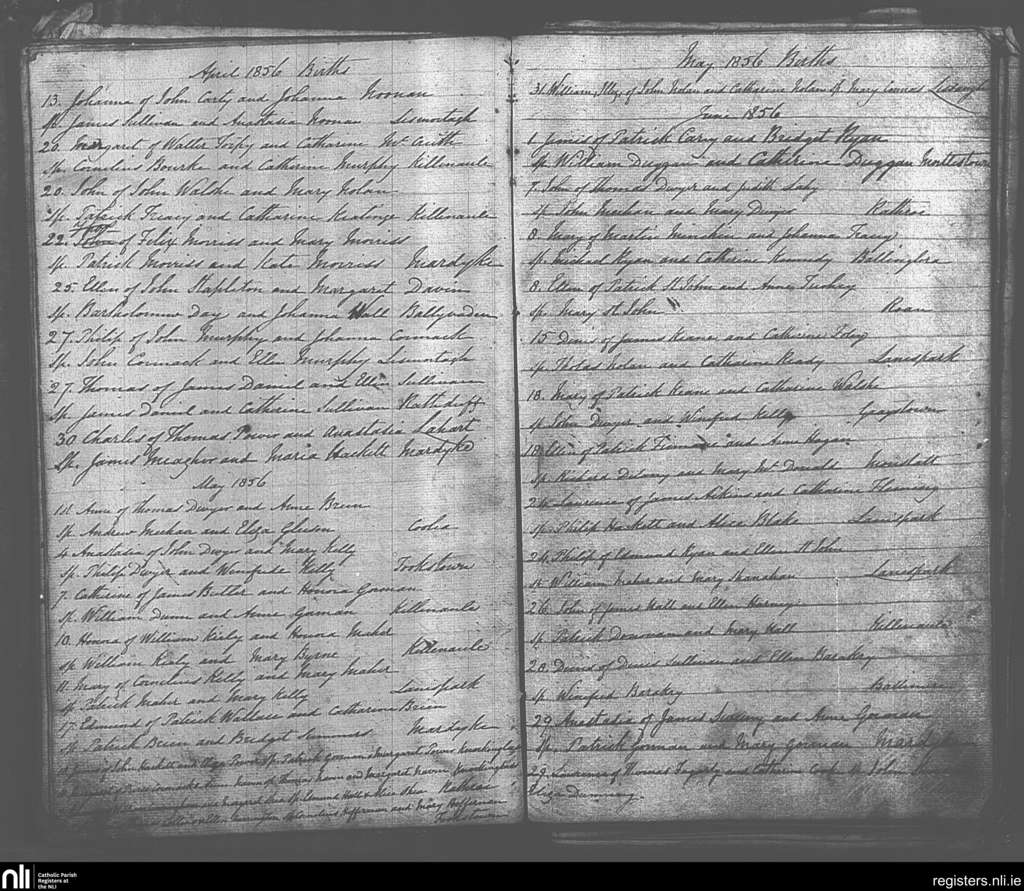 April 1856 Births
13. Johanna of John Carty and Johanna Noonan
Sp. James Sullivan and Anastasia Noonan Lismortagh
20. Margaret of Walter Torpy and Catharine
Sp. Cornelius Bourke and Catherine Murphy Killenaule
20. John of John Walshe and Mary Nolan
Sp. Patrick Treacy and Catharine Keatinge Killenaule
22. of Felix Morriss and Mary Morriss
Sp. Patrick Morriss and Kate Morriss Mardyke
25 Ellen of John Stapleton and Margaret Davin
Sp. Bartholomew Day and Johanna Wall Ballyvadin
27. Philip of John Murphy and Johanna Cormack
Sp. John Cormack and Ellen Murphy Lismortagh
27. Thomas of James Daniel and Ellen Sullivan
Sp. James Daniel and Catherine Sullivan
30 Charles of Thomas Power and Anastasia Lahart
Sp. James Meagher and Maria Hackett Mardyke
May 1856
1st Anne of Thomas Dwyer and Anne Breen
Sp. Andrew Meehan and Eliza Gleeson Coolea
4. Anastasia of John Dwyer and Mary Kelly
Sp. Philip Dwyer and Winefride Kelly
7. Catherine of James Butler and Honora Gorman
Sp. William Dunn and Anne Gorman Killenaule
10. Honora of William Kiely and Honora Maher
Sp William Kiely and Mary Byrne Killenaule
11. Mary of Cornelius Kelly and Mary Maher
Sp Patrick Maher and Mary Kelly Lanespark
17. Edmond of Patrick Wallace and Catharine Breen
Sp. Patrick Breen and Bridget Summers Mardyke
of John Hackett and Eliza Power Sp. Patrick Gorman & Margaret Power
of Thomas and Margaret
Edmond
Heffernan and Mary Heffernan
May 1856 Births
31. William, Illeg. of John Nolan and Catharine Nolan Sp. Mary Connors
June 1856
1. James of Patrick Cary and Bridget Ryan
Sp William Duggan and Catherine Duggan Moltestown
7. John of Thomas Dwyer and Judith Lahy
Sp John Meehan and Mary Dwyer
8. Mary of Martin Minehan and Johanna Tracey
Sp. Michael Ryan and Catherine Kennedy
8. Ellen of Patrick St. John and Anne Tuohey
Sp. Mary St John Roan
15 Denis of James Keane and Catherine
Sp. Thos Nolan and Catharine Ready Lanespark
18. Mary of Patrick Keane and Catharine Walshe
Sp John Dwyer and Winefred Kelly Graystown
18. Ellen of Patrick and Anne Hogan
Sp. Richard Delany and Mary McDonald
24 Laurence of James and Catharine Fleming
Sp. Philip Hackett and Alice Blake Lanespark
24. Philip of Edmund Ryan and Ellen St John
Sp. William Maher and Mary Shanahan Lanespark
26. John of James Hall and Ellen
Sp. Patrick Donovan and Mary Hall Killenaule
28. Denis of Denis Sullivan and Ellen
Sp. Winefred
29 Anastasia of James and Anne Gorman
Sp. Patrick Gorman and Mary Gorman Mardyke
29. Laurence of Thomas Fogarty and Catherine Sp. John
Eliza
nli Catholic Parish
Registers at
the NLI
registers.nli.ie